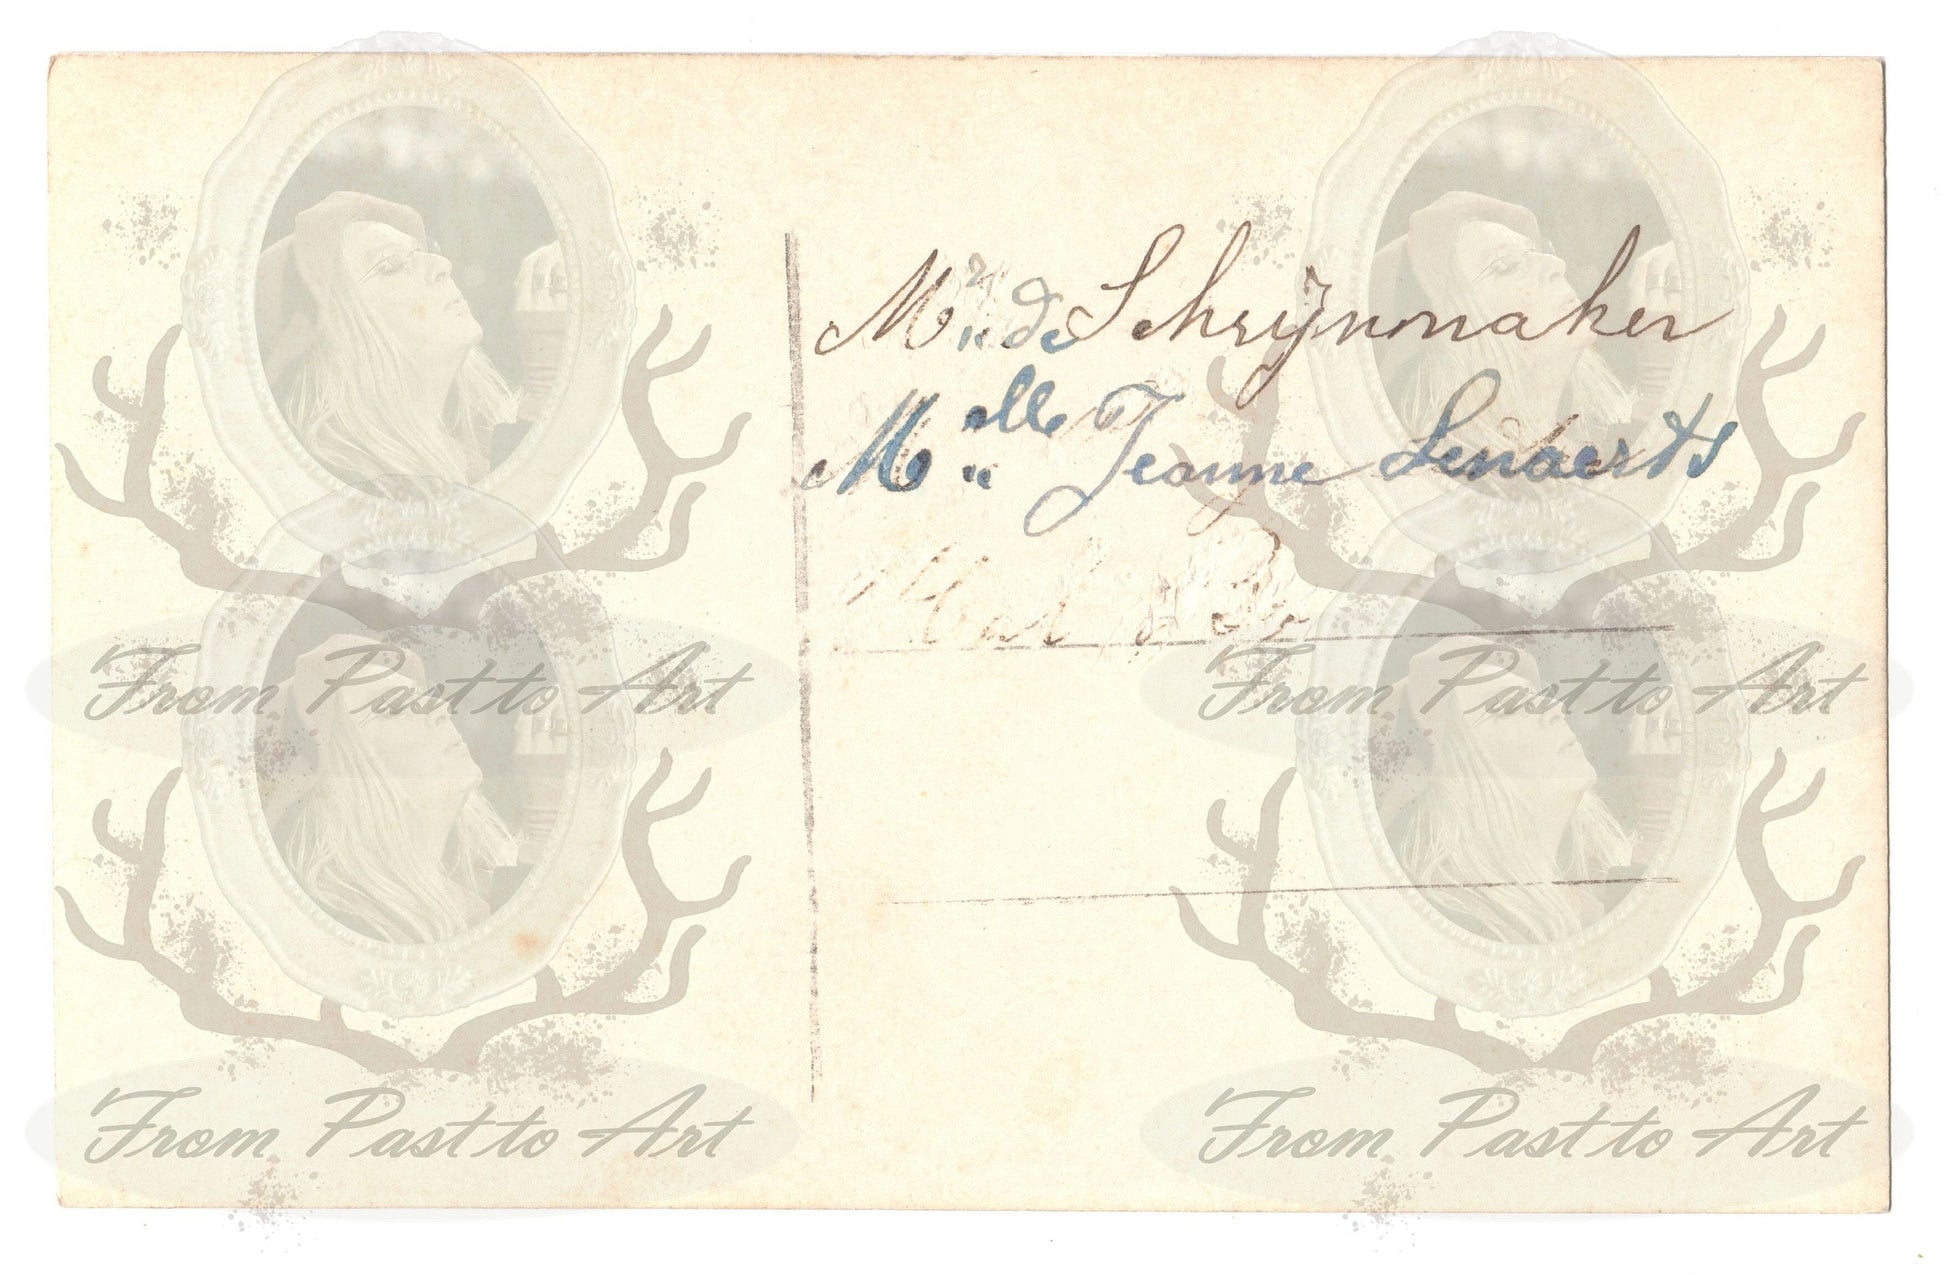 Mr de Schrynmaker
Melle Jeanne Lenaerts
From Past to Art
From Past to Art
From Past to Art
From Past to Art